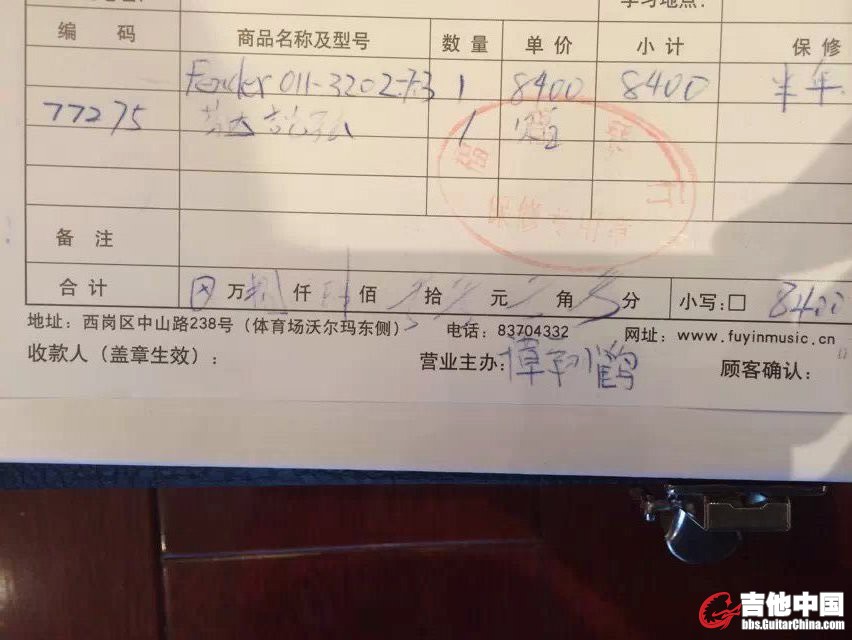 学习地点：
编 码 商品名称及型号 数 量 单 价 小 计 保 修
Fender 011-3202-773 1 8400 8400 半年
77275 1
备 注
合 计 万 仟 佰 拾 元 角 分 小写：□ 8400
地址：西岗区中山路238号（体育场沃尔玛东侧） 电话：83704332 网址：www.fuyinmusic.cn
收款人（盖章生效）： 营业主办： 顾客确认：
吉他中国
bbs.GuitarChina.com